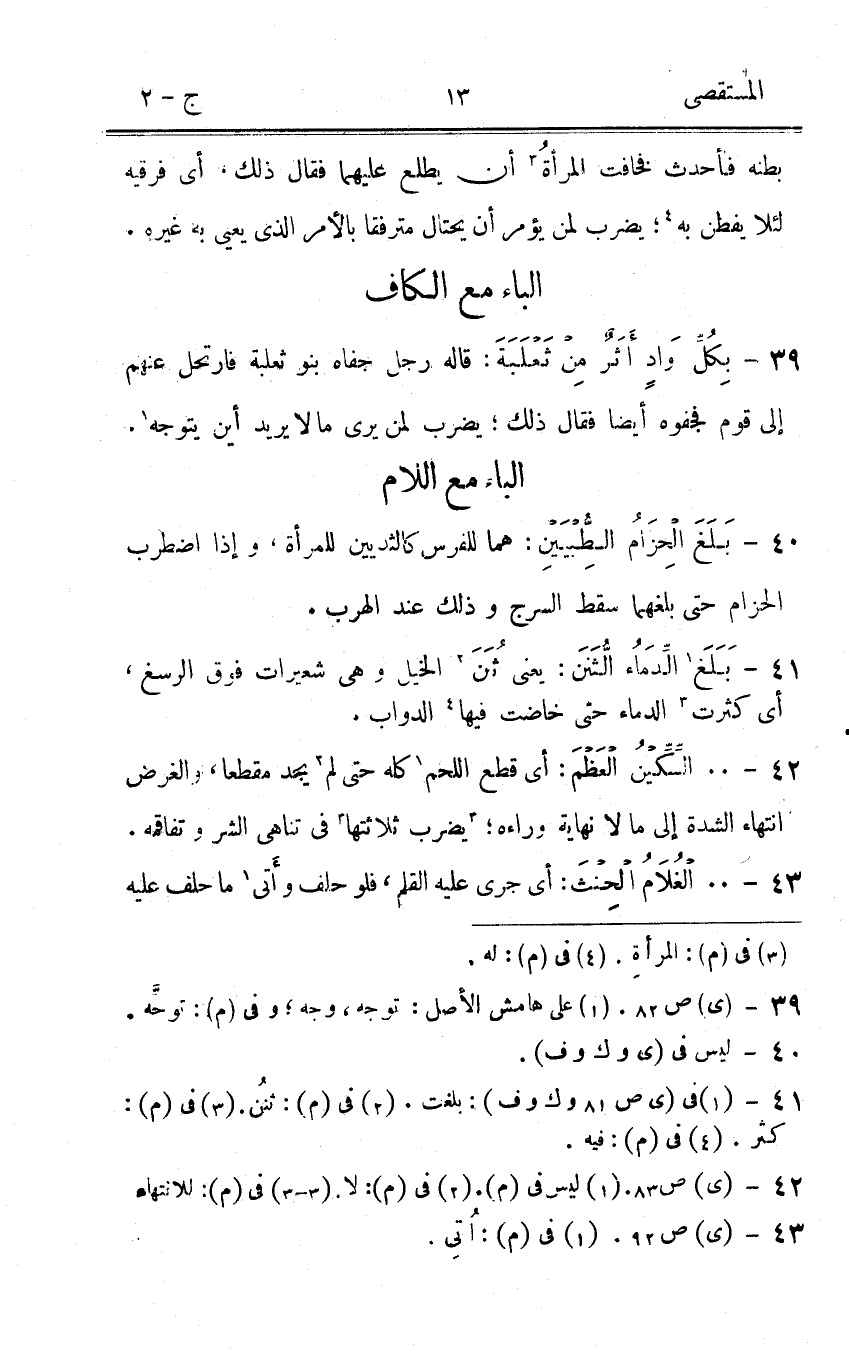 المستقصى ١٣ ج - ٢
بطنه فأحدث فخافت المرأةُ٣ أن يطلع عليهما فقال ذلك، أى فرقيه
لئلا يفطن به٤؛ يضرب لمن يؤمر أن يحتال مترفقا بالأمر الذى يعيى به غيره.
الباء مع الكاف
٣٩ - بِكُلِّ وَادٍ أَثَرٌ مِنْ ثَعْلَبَةَ: قاله رجل جفاه بنو ثعلبة فارتحل عنهم
إلى قوم فجفوه أيضا فقال ذلك؛ يضرب لمن يرى ما لا يريد أين يتوجه١.
الباء مع اللام
٤٠ - بَلَغَ الْحِزَامُ الطُّبْيَيْنِ: هما للفرس كالثديين للمرأة، و إذا اضطرب
الحزام حتى بلغهما سقط السرج و ذلك عند الهرب.
٤١ - بَلَغَ١ الدِّمَاءُ الثُّنَنَ: يعنى ثُنَنَ٢ الخيل و هى شعيرات فوق الرسغ،
أى كثرت٣ الدماء حتى خاضت فيها٤ الدواب.
٤٢ - .. السِّكِّينُ الْعَظْمَ: أى قطع اللحم١ كله حتى لم٢ يجد مقطعا، والغرض
انتهاء الشدة إلى ما لا نهاية وراءه؛ ٣يضرب ثلاثتها٣ فى تناهى الشر و تفاقمه.
٤٣ - .. الْغُلَامُ الْحِنْثَ: أى جرى عليه القلم، فلو حلف و أَتى١ ما حلف عليه
(٣) فى (م): المرأةِ. (٤) فى (م): له.
٣٩ - (ى) ص ٨٢. (١) على هامش الأصل: توجه، وجه؛ و فى (م): توجَّه.
٤٠ - ليس فى (ى و ك و ف).
٤١ - (١) فى (ى ص ٨١ و ك و ف): بلغت. (٢) فى (م): ثُنُن. (٣) فى (م):
كثر. (٤) فى (م): فيه.
٤٢ - (ى) ص ٨٣. (١) ليس فى (م). (٢) فى (م): لا. (٣-٣) فى (م): للانتهاء
٤٣ - (ى) ص ٩٢. (١) فى (م): أُتِى.